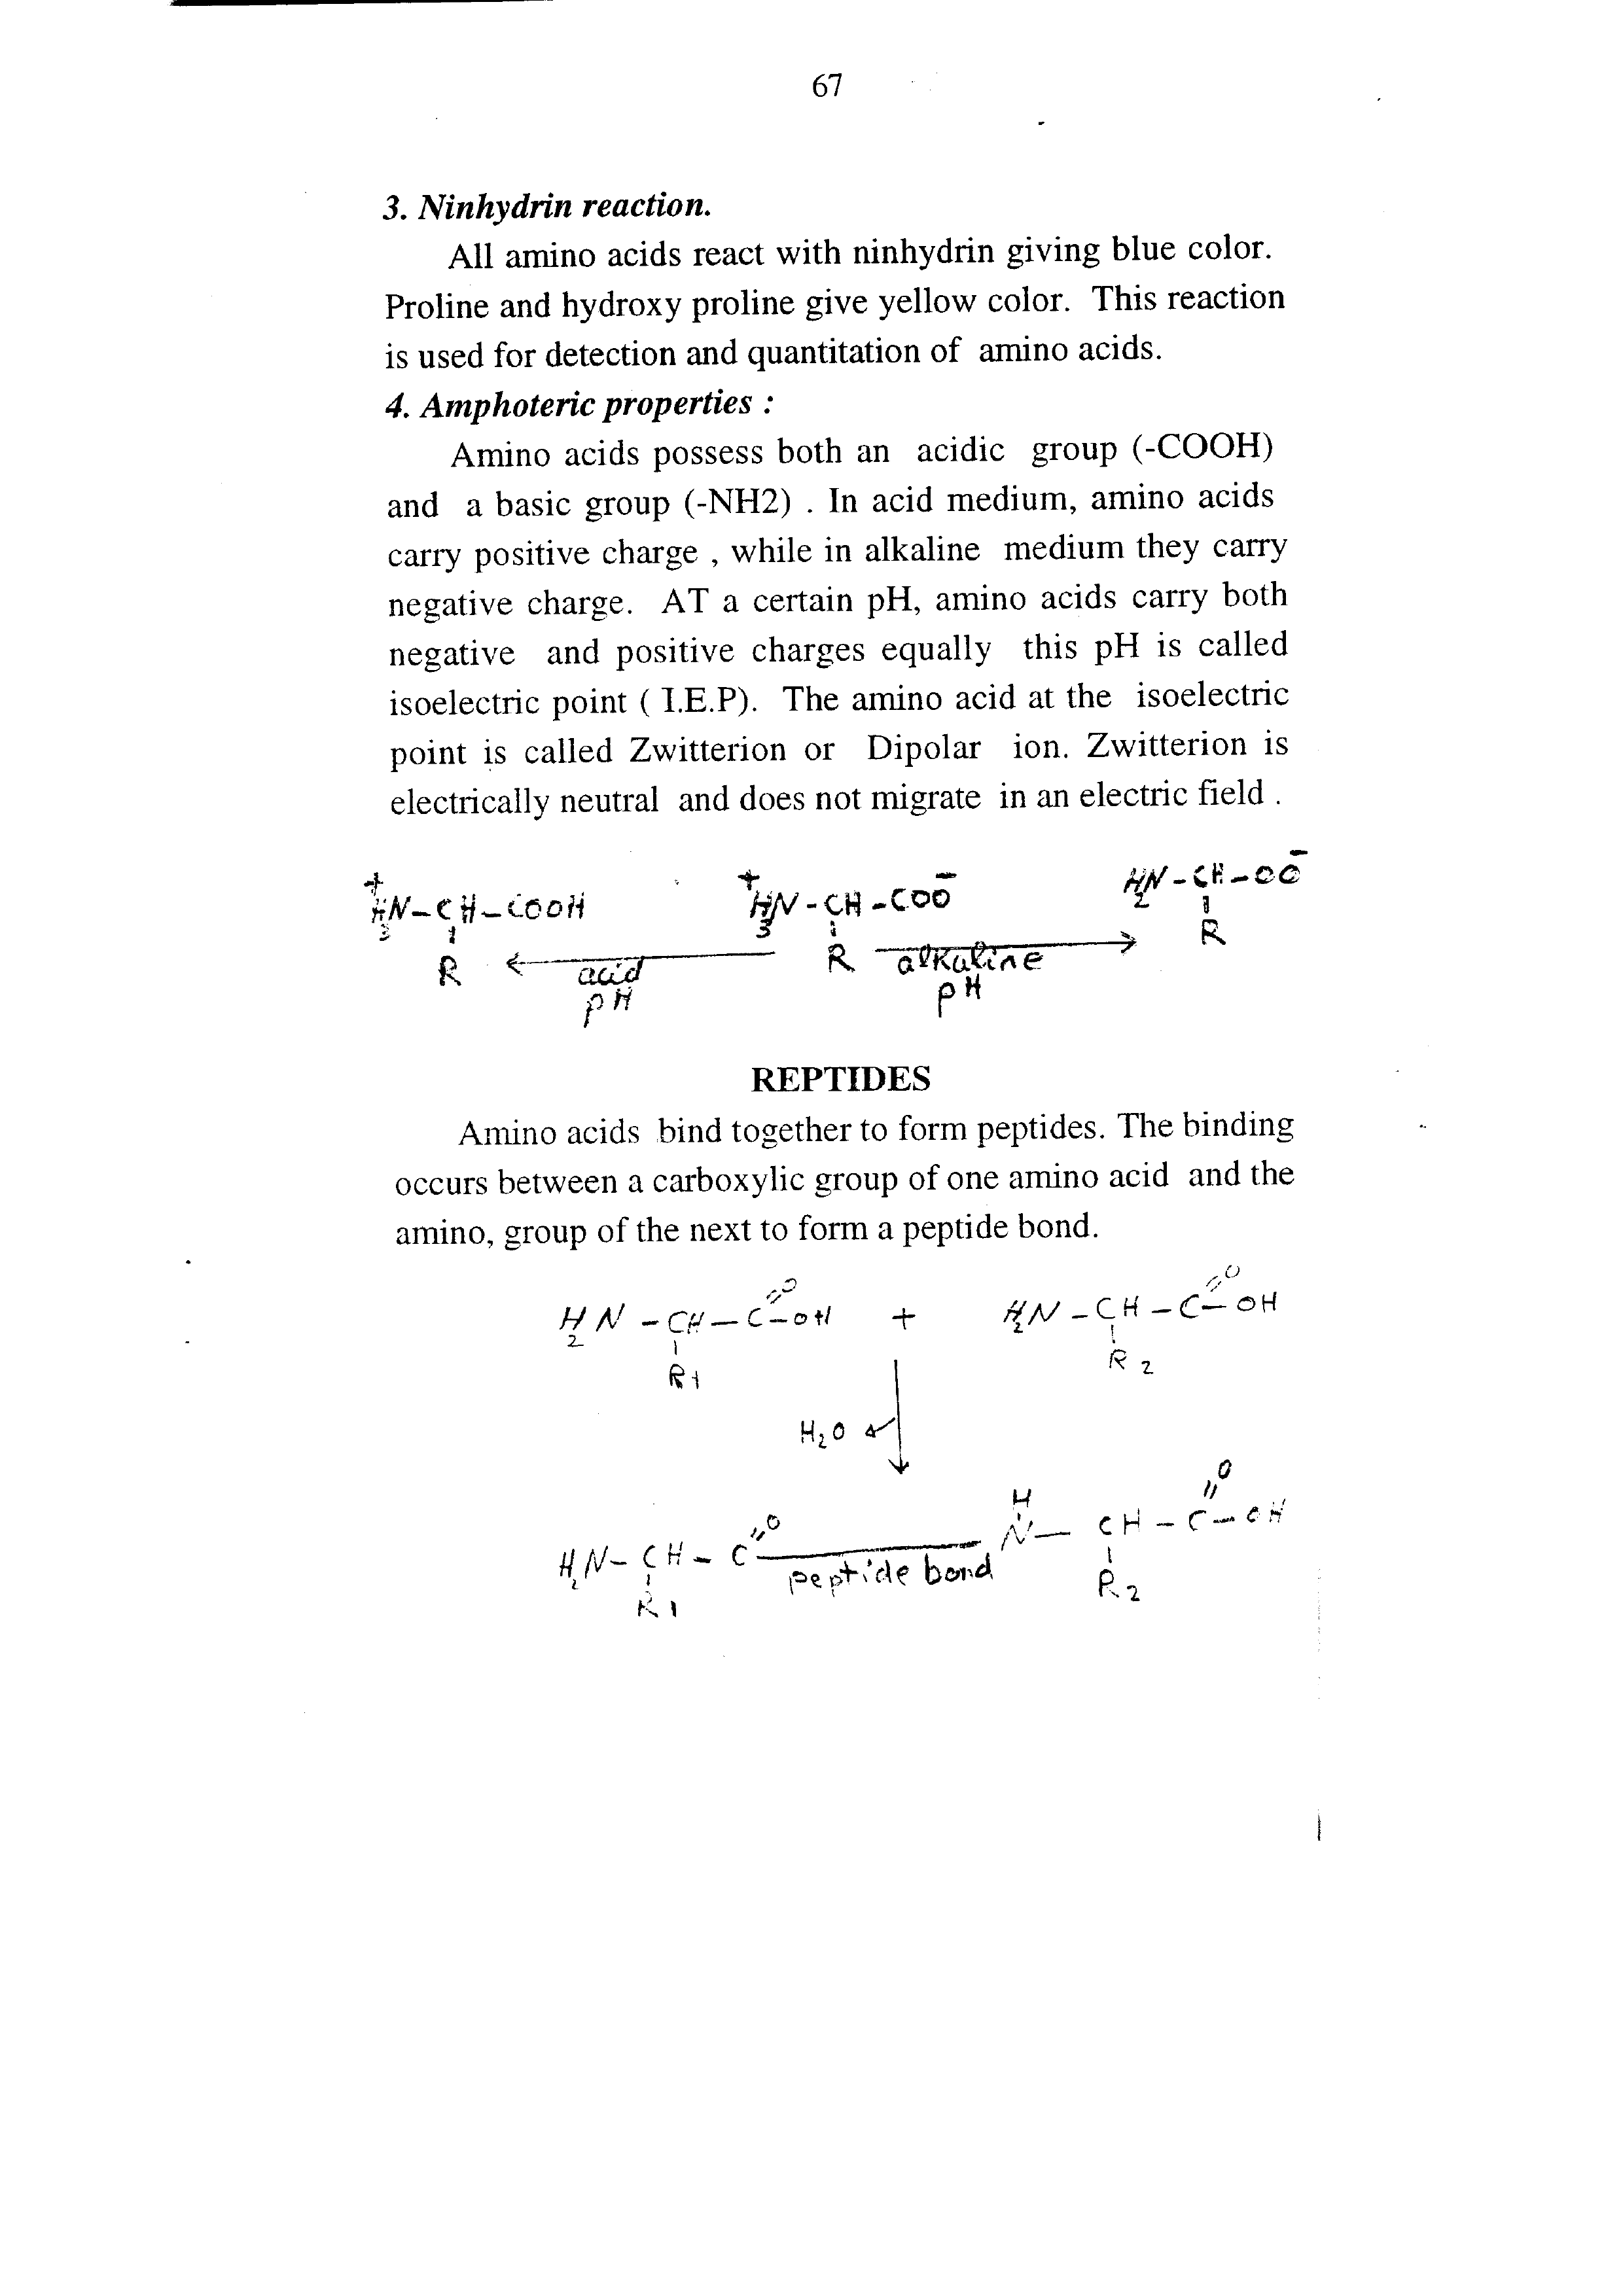 67
3. Ninhydrin reaction.
All amino acids react with ninhydrin giving blue color.
Proline and hydroxy proline give yellow color. This reaction
is used for detection and quantitation of amino acids.
4. Amphoteric properties :
Amino acids possess both an acidic group (-COOH)
and a basic group (-NH2) . In acid medium, amino acids
carry positive charge , while in alkaline medium they carry
negative charge. AT a certain pH, amino acids carry both
negative and positive charges equally this pH is called
isoelectric point ( I.E.P). The amino acid at the isoelectric
point is called Zwitterion or Dipolar ion. Zwitterion is
electrically neutral and does not migrate in an electric field .
+ + - -
H3N-CH-COOH H3N-CH-COO H2N-CH-OO
R R R
acid alkaline
pH pH
REPTIDES
Amino acids bind together to form peptides. The binding
occurs between a carboxylic group of one amino acid and the
amino, group of the next to form a peptide bond.
O O
H2N-CH-C-OH + H2N-CH-C-OH
R1 R2
H2O
O H O
H2N-CH-C N-CH-C-OH
peptide bond
R1 R2